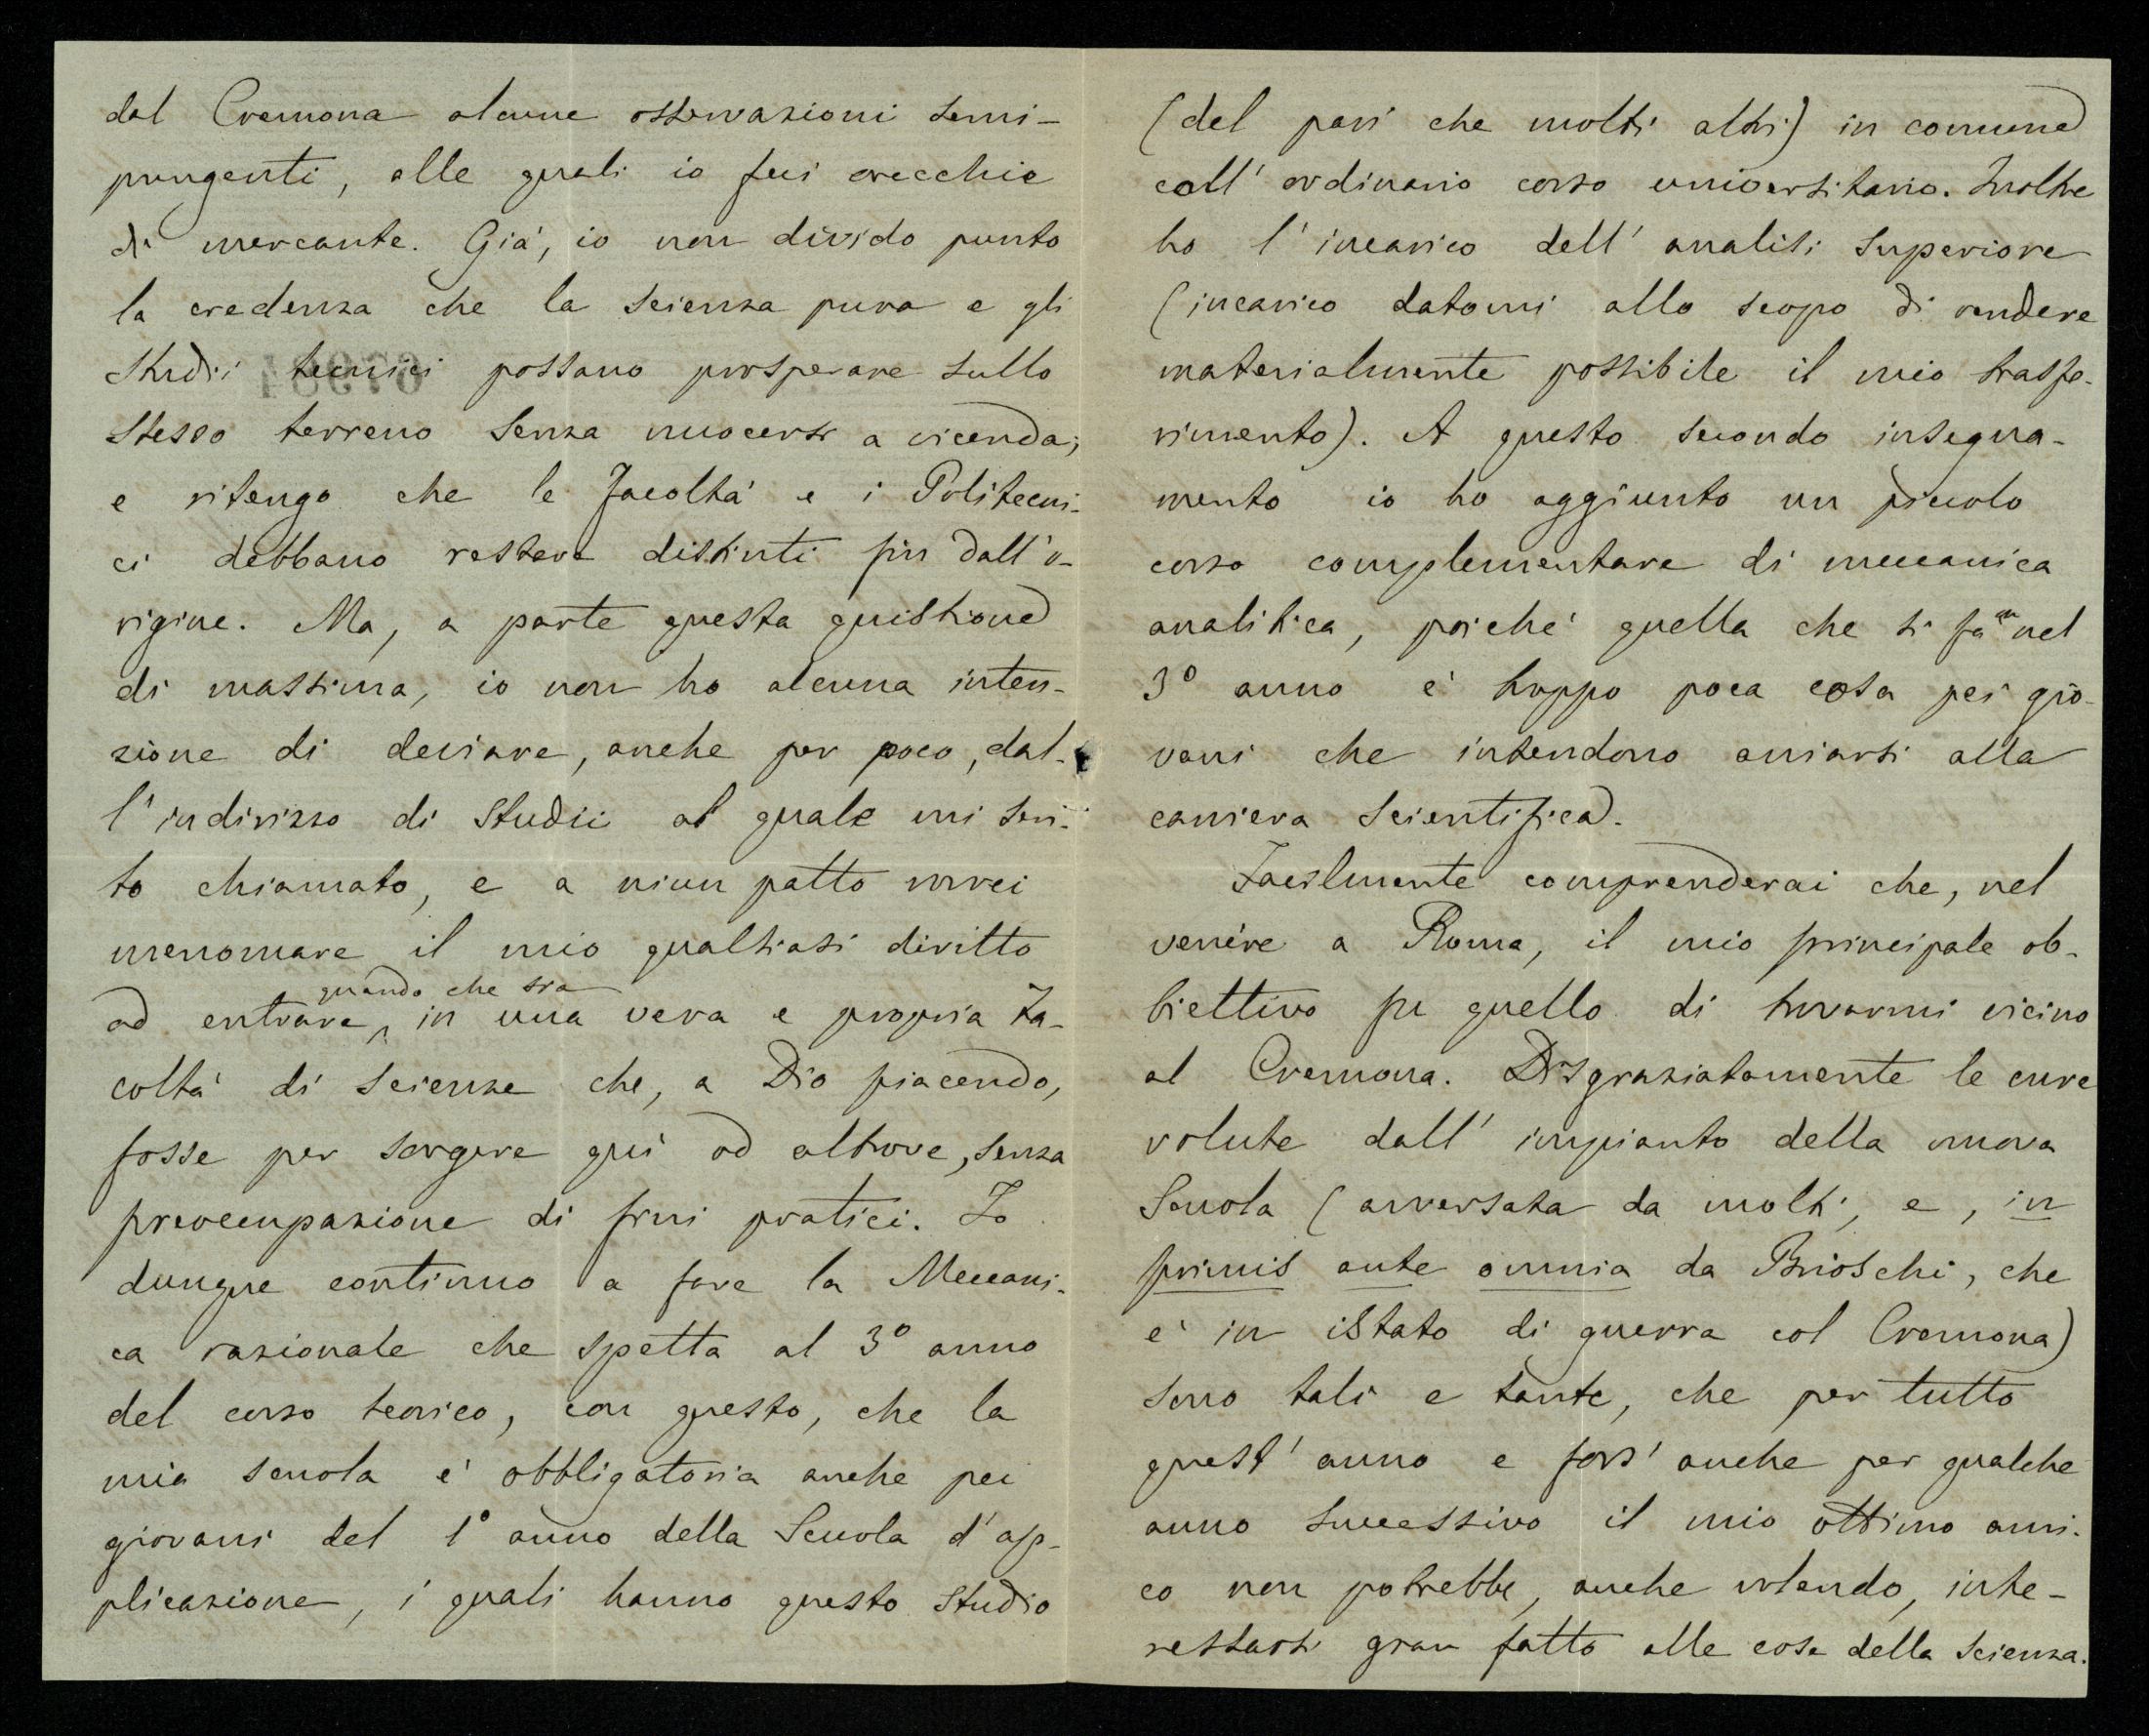 dal Cremona alcune osservazioni semi-
pungenti, alle quali io feci orecchie
di mercante. Già, io non divido punto
la credenza che la scienza pura e gli
studii tecnici possano prosperare sullo
stesso terreno senza nuocersi a vicenda;
e ritengo che le Facoltà e i Politecni-
ci debbano restare distinti fin dall'o-
rigine. Ma, a parte questa quistione
di massima, io non ho alcuna inten-
zione di deviare, anche per poco, dal-
l'indirizzo di studii al quale mi sen-
to chiamato, e a niun patto vorrei
menomare il mio qualsiasi diritto
quando che sia
ad entrare, in una vera e propria Fa-
coltà di scienze che, a Dio piacendo,
fosse per sorgere qui od altrove, senza
preoccupazione di fini pratici. Io
dunque continuo a fare la Meccani-
ca razionale che spetta al 3° anno
del corso teorico, con questo, che la
mia scuola è obbligatoria anche pei
giovani del 1° anno della Scuola d'ap-
plicazione, i quali hanno questo studio
(del pari che molti altri) in comune
coll'ordinario corso universitario. Inoltre
ho l'incarico dell'analisi superiore
(incarico datomi allo scopo di rendere
materialmente possibile il mio trasfe-
rimento). A questo secondo insegna-
mento io ho aggiunto un piccolo
corso complementare di meccanica
analitica, poiché quella che si fa nel
3° anno è troppo poca cosa pei gio-
vani che intendono avviarsi alla
carriera scientifica.
Facilmente comprenderai che, nel
venire a Roma, il mio principale ob-
biettivo fu quello di trovarmi vicino
al Cremona. Disgraziatamente le cure
volute dall'impianto della nuova
Scuola (avversata da molti, e, in
primis ante omnia da Brioschi, che
è in istato di guerra col Cremona)
sono tali e tante, che per tutto
quest'anno e fors'anche per qualche
anno successivo il mio ottimo ami-
co non potrebbe, anche volendo, inte-
ressarsi gran fatto alle cose della scienza.